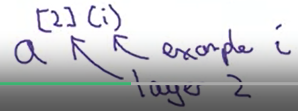 a^[2](i)
example i
layer 2